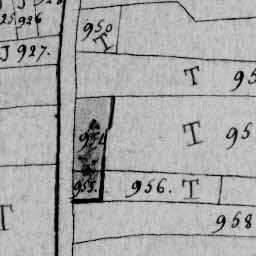 926
J 927.
950
T
T
95
954
T
95
955.
956. T
T
958